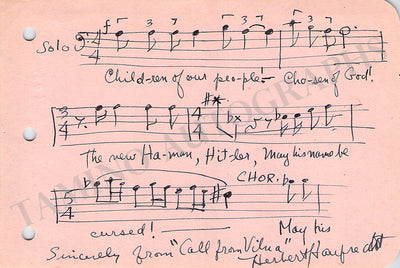 3 3 3
Solo 4/4
Child-ren of our peo-ple! — Cho-sen of God!
3/4 4/4
The new Ha-man, Hit-ler, May his name be
5/4 CHOR.
cursed! May his
Sincerely from "Call from Vilna"
Herbert Haufrecht
TAMINO AUTOGRAPHS